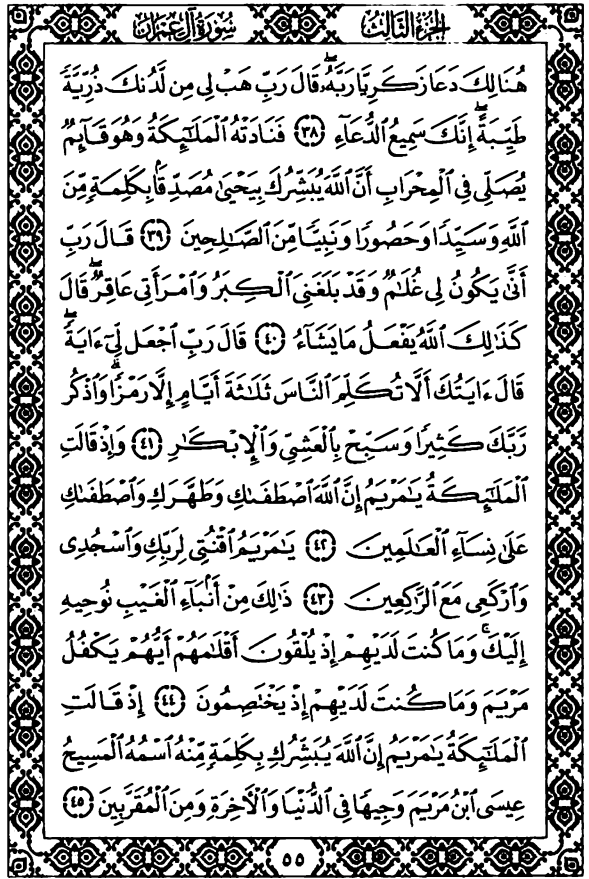 الجزء الثالث سورة آل عمران
هُنَالِكَ دَعَا زَكَرِيَّا رَبَّهُۥۖ قَالَ رَبِّ هَبۡ لِي مِن لَّدُنكَ ذُرِّيَّةٗ
طَيِّبَةًۖ إِنَّكَ سَمِيعُ ٱلدُّعَآءِ ٣٨ فَنَادَتۡهُ ٱلۡمَلَـٰٓئِكَةُ وَهُوَ قَآئِمٞ
يُصَلِّي فِي ٱلۡمِحۡرَابِ أَنَّ ٱللَّهَ يُبَشِّرُكَ بِيَحۡيَىٰ مُصَدِّقَۢا بِكَلِمَةٖ مِّنَ
ٱللَّهِ وَسَيِّدٗا وَحَصُورٗا وَنَبِيّٗا مِّنَ ٱلصَّـٰلِحِينَ ٣٩ قَالَ رَبِّ
أَنَّىٰ يَكُونُ لِي غُلَـٰمٞ وَقَدۡ بَلَغَنِيَ ٱلۡكِبَرُ وَٱمۡرَأَتِي عَاقِرٞۖ قَالَ
كَذَٰلِكَ ٱللَّهُ يَفۡعَلُ مَا يَشَآءُ ٤٠ قَالَ رَبِّ ٱجۡعَل لِّيٓ ءَايَةٗۖ
قَالَ ءَايَتُكَ أَلَّا تُكَلِّمَ ٱلنَّاسَ ثَلَـٰثَةَ أَيَّامٍ إِلَّا رَمۡزٗاۗ وَٱذۡكُر
رَّبَّكَ كَثِيرٗا وَسَبِّحۡ بِٱلۡعَشِيِّ وَٱلۡإِبۡكَـٰرِ ٤١ وَإِذۡ قَالَتِ
ٱلۡمَلَـٰٓئِكَةُ يَـٰمَرۡيَمُ إِنَّ ٱللَّهَ ٱصۡطَفَىٰكِ وَطَهَّرَكِ وَٱصۡطَفَىٰكِ
عَلَىٰ نِسَآءِ ٱلۡعَـٰلَمِينَ ٤٢ يَـٰمَرۡيَمُ ٱقۡنُتِي لِرَبِّكِ وَٱسۡجُدِي
وَٱرۡكَعِي مَعَ ٱلرَّٰكِعِينَ ٤٣ ذَٰلِكَ مِنۡ أَنۢبَآءِ ٱلۡغَيۡبِ نُوحِيهِ
إِلَيۡكَۚ وَمَا كُنتَ لَدَيۡهِمۡ إِذۡ يُلۡقُونَ أَقۡلَـٰمَهُمۡ أَيُّهُمۡ يَكۡفُلُ
مَرۡيَمَ وَمَا كُنتَ لَدَيۡهِمۡ إِذۡ يَخۡتَصِمُونَ ٤٤ إِذۡ قَالَتِ
ٱلۡمَلَـٰٓئِكَةُ يَـٰمَرۡيَمُ إِنَّ ٱللَّهَ يُبَشِّرُكِ بِكَلِمَةٖ مِّنۡهُ ٱسۡمُهُ ٱلۡمَسِيحُ
عِيسَى ٱبۡنُ مَرۡيَمَ وَجِيهٗا فِي ٱلدُّنۡيَا وَٱلۡأٓخِرَةِ وَمِنَ ٱلۡمُقَرَّبِينَ ٤٥
٥٥